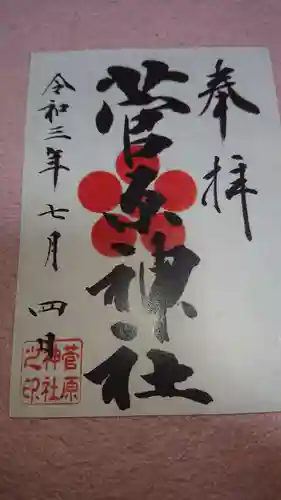 奉拝
菅原神社
令和三年七月四日
菅原
神社
之印